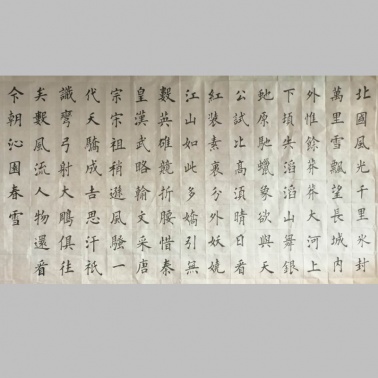 北國風光千里氷封
萬里雪飄望長城内
外惟餘莽莽大河上
下頃失滔滔山舞銀
蛇原馳蠟象欲與天
公試比高須晴日看
紅裝素裹分外妖嬈
江山如此多嬌引無
數英雄競折腰惜秦
皇漢武略輸文采唐
宗宗祖稍遜風騷一
代天驕成吉思汗祇
識彎弓射大鵰俱往
矣數風流人物還看
今朝沁園春雪